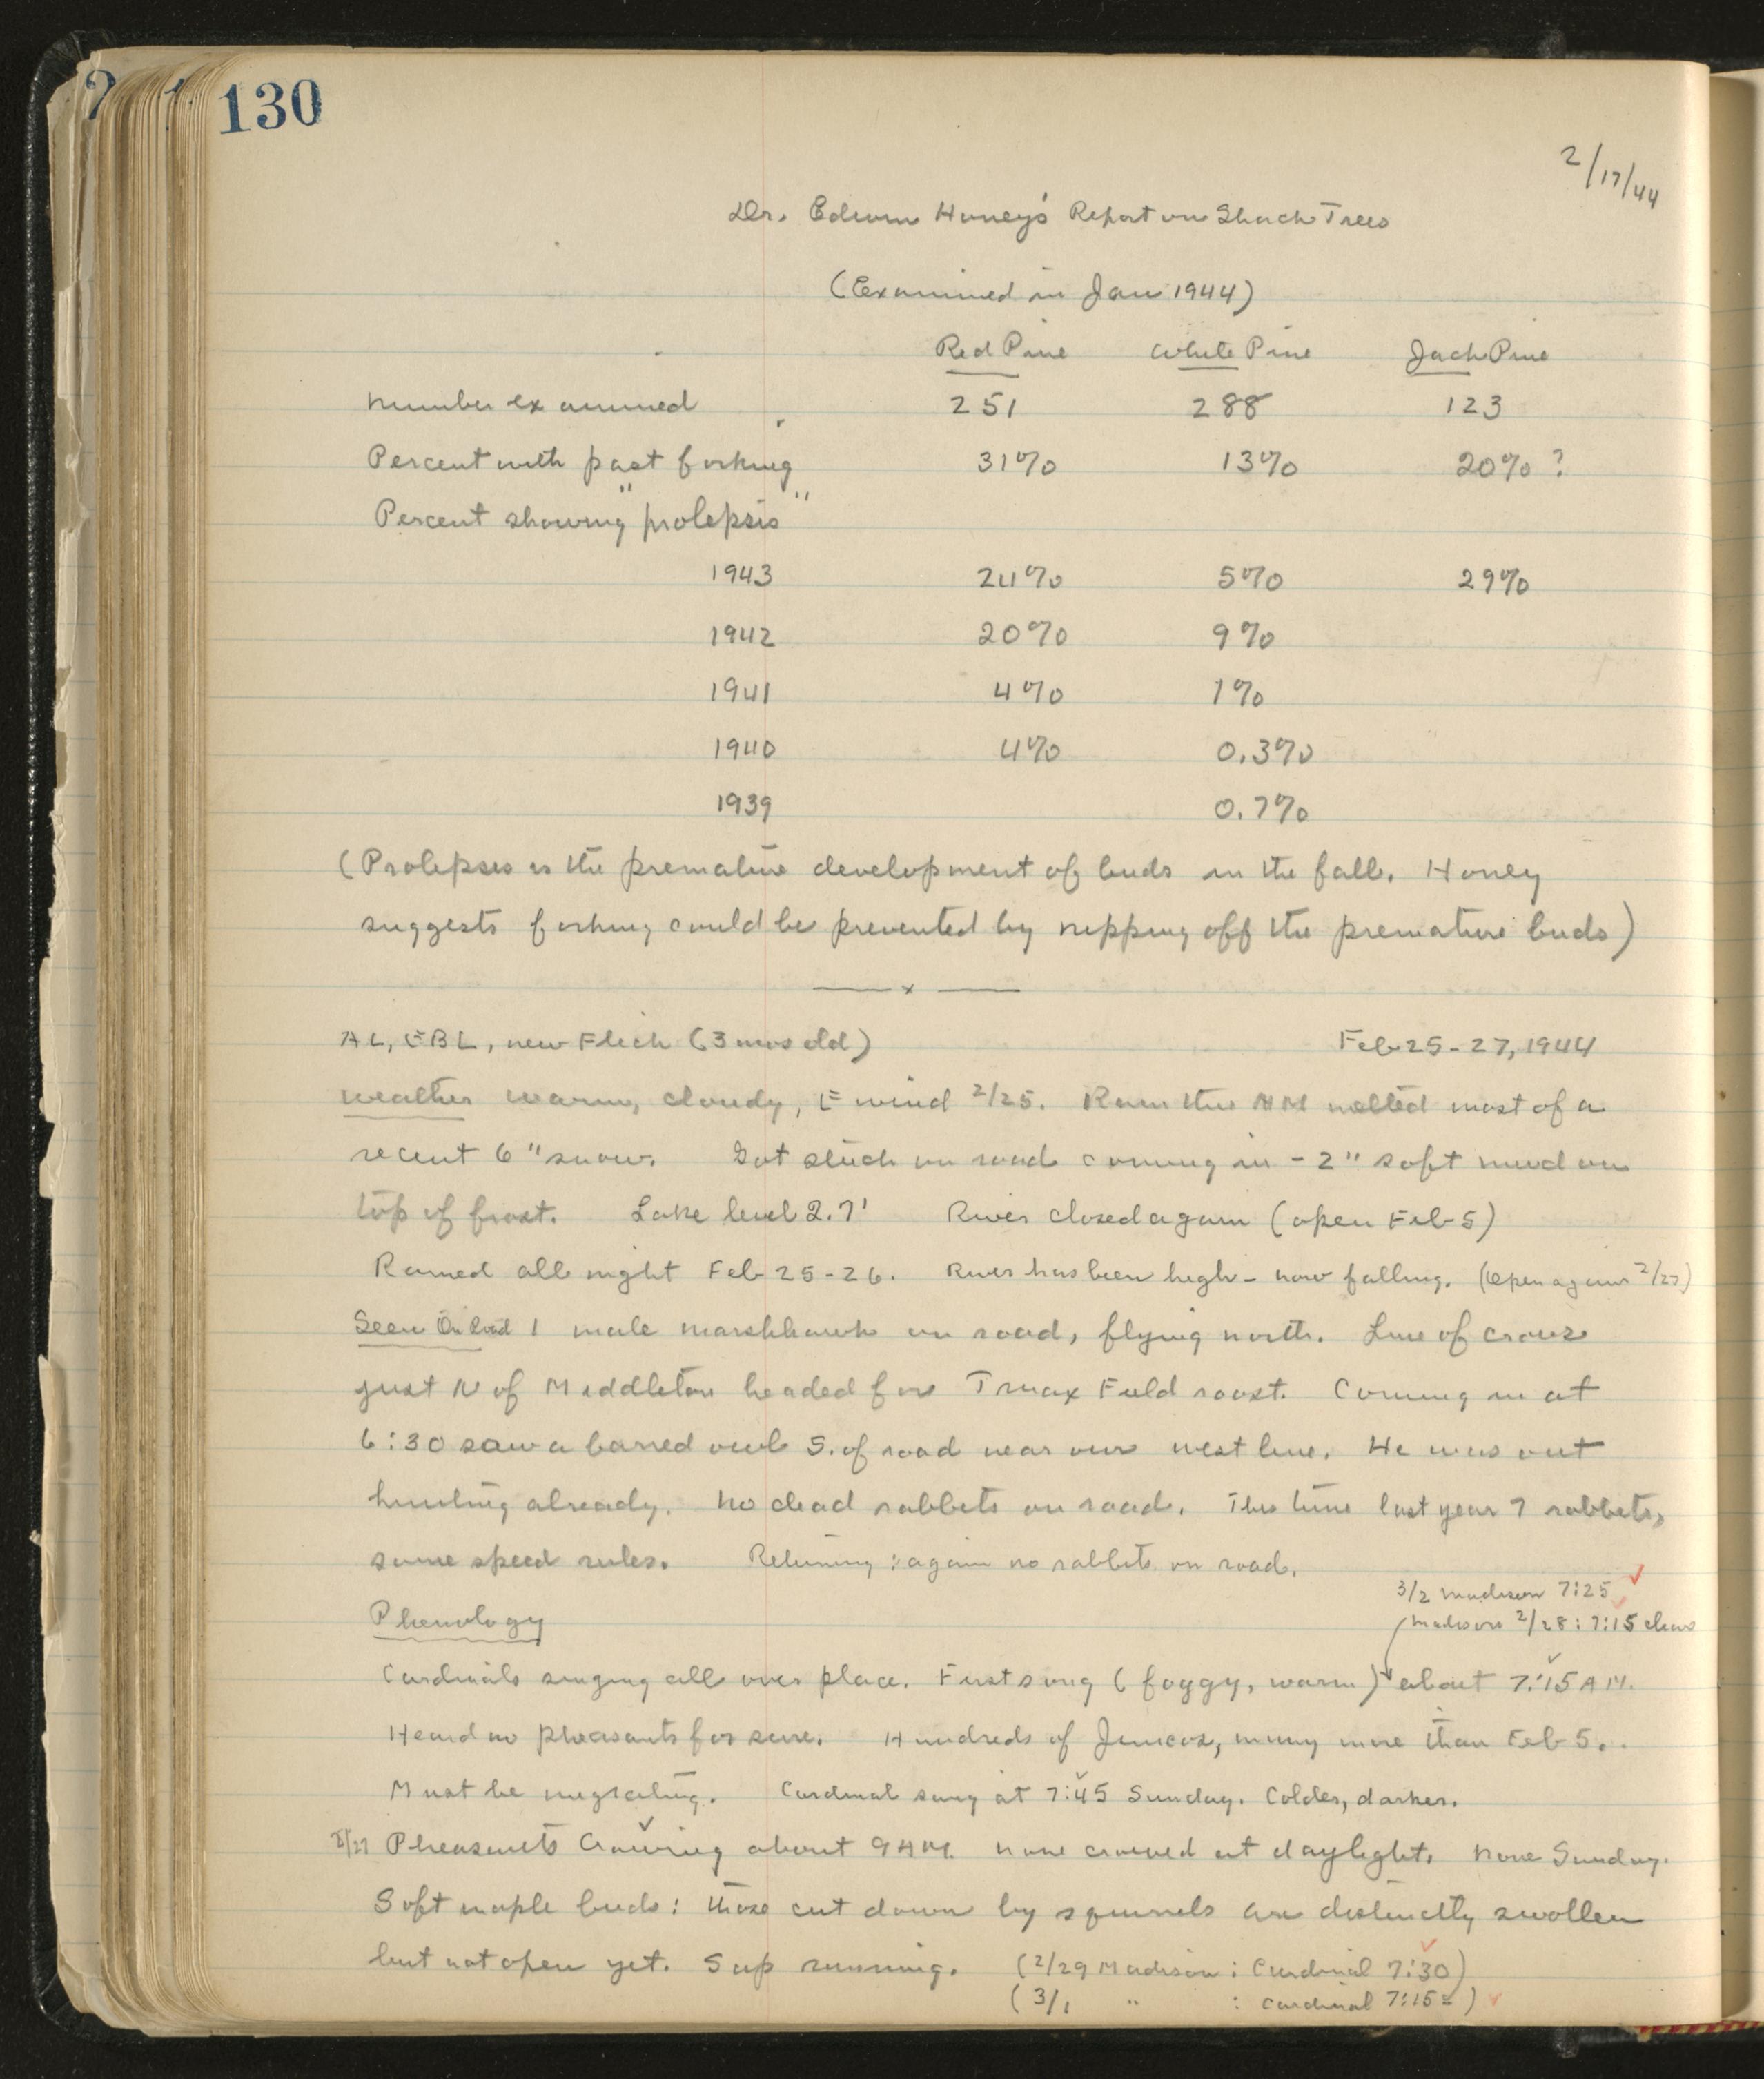 130
2/17/44
Dr. Edwin Honey's Report on Shack Trees
(Examined in Jan 1944)
Red Pine White Pine Jack Pine
Number examined 251 288 123
Percent with past forking 31% 13% 20% ?
Percent showing "prolepsis"
1943 24% 5% 29%
1942 20% 9%
1941 4% 1%
1940 4% 0.3%
1939 0.7%
(Prolepsis is the premature development of buds in the fall. Honey
suggests forking could be prevented by nipping off the premature buds)
x
AL, EBL, new Flick (3 mos old) Feb 25-27, 1944
Weather warm, cloudy, E wind 2/25. Rain this AM melted most of a
recent 6" snow. Got stuck on road coming in - 2" soft mud on
top of frost. Lake level 2.7' River closed again (open Feb 5)
Rained all night Feb 25-26. River has been high - now falling. (Open again 2/27)
Seen On Road 1 male marshhawk on road, flying north. Line of crows
just N of Middleton headed for Truax Field roost. Coming in at
6:30 saw a barred owl S. of road near our west line. He was out
hunting already. No dead rabbits on road. This time last year 7 rabbits,
same speed rules. Returning: again no rabbits on road.
3/2 Madison 7:25
Phenology Madison 2/28: 7:15 clear
Cardinals singing all over place. First song (foggy, warm) about 7:15 AM.
Heard no pheasants for sure. Hundreds of Juncos, many more than Feb 5.
Must be migrating. Cardinal sang at 7:45 Sunday. Colder, darker.
Pheasants Crowing about 9 AM. None crowed at daylight. None Sunday.
Soft maple buds: those cut down by squirrels are distinctly swollen
but not open yet. Sap running. (2/29 Madison: Cardinal 7:30)
(3/1 " : Cardinal 7:15)